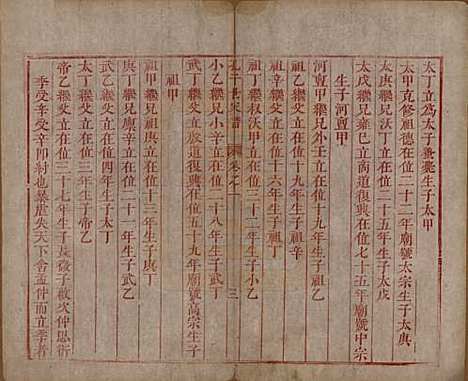 太丁立為太子早薨生子太甲
太甲克修祖德在位三十三年廟號太宗生子太庚
太庚繼兄沃丁立在位二十五年生子太戊
太戊繼兄雍己立商道復興在位七十五年廟號中宗
生子河亶甲
河亶甲繼兄外壬立在位九年生子祖乙
祖乙繼父立在位十九年生子祖辛
祖辛繼父立在位十六年生子祖丁
祖丁繼叔沃甲立在位三十二年生子小乙
孔子世家譜 卷之一 三
小乙繼兄立在位二十八年生子武丁
武丁繼父立殷道復興在位五十九年廟號高宗生子
祖甲
祖甲繼兄祖庚立在位三十三年生子庚丁
庚丁繼兄廩辛立在位二十一年生子武乙
武乙繼父立在位四年生子太丁
太丁繼父立在位三年生子帝乙
帝乙繼父立在位三十七年生子長微子啟次仲思衍
季受辛受辛即紂也暴虐失天下舍孟仲而立季者